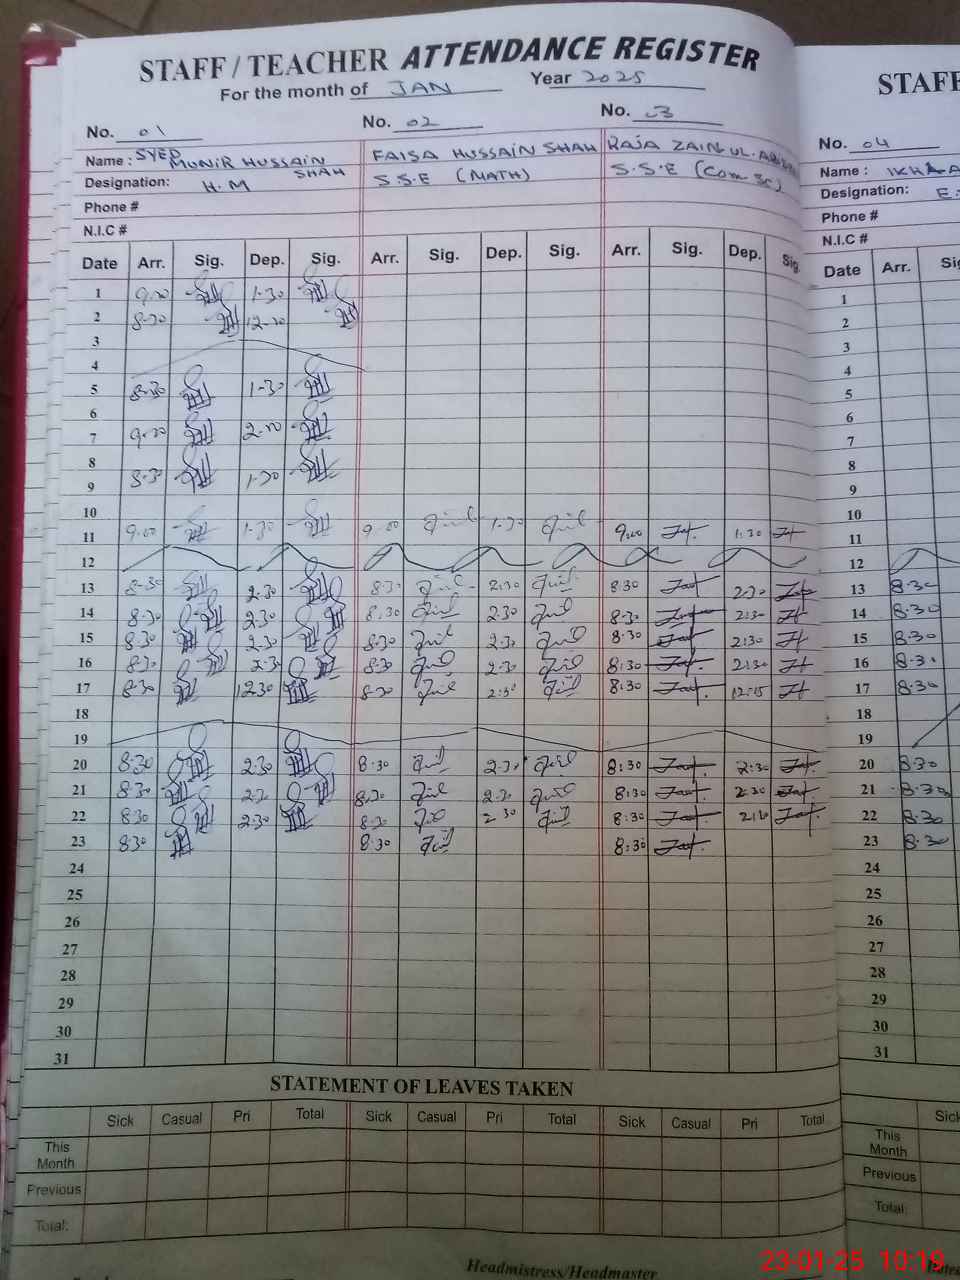 STAFF / TEACHER ATTENDANCE REGISTER
For the month of JAN Year 2025
No. 01 No. 02 No. 03
Name : SYED MUNIR HUSSAIN SHAH FAISA HUSSAIN SHAH RAJA ZAIN UL.
Designation: H.M S.S.E (MATH) S.S.E (Com Sc)
Phone #
N.I.C #
Date Arr. Sig. Dep. Sig. Arr. Sig. Dep. Sig. Arr. Sig. Dep. Sig.
1 9.00 1.30
2 8.30 12.30
3
4
5 8.30 1.30
6
7 9.00 2.00
8
9 8.30 1.30
10
11 9.00 1.30 9.00 1.30 9.00 1.30
12
13 8.30 2.30 8.30 2:30 8:30 2:30
14 8.30 2.30 8.30 2:30 8:30 2:30
15 8.30 2.30 8.30 2:30 8:30 2:30
16 8.30 2.30 8.30 2:30 8:30 2:30
17 8.30 12.30 8.30 2:30 8:30 12:15
18
19
20 8.30 2.30 8.30 2:30 8:30 2:30
21 8.30 2.30 8.30 2:30 8:30 2:30
22 8.30 2.30 8.30 2 30 8:30
23 8.30 8.30 8:30
24
25
26
27
28
29
30
31
STATEMENT OF LEAVES TAKEN
Sick Casual Pri Total Sick Casual Pri Total Sick Casual Pri Total
This Month
Previous
Total:
Headmistress/Headmaster
STAFF
No. 04
Name :
Designation: E.
Phone #
N.I.C #
Date Arr.
1
2
3
4
5
6
7
8
9
10
11
12
13 8.30
14 8.30
15 8.30
16 8.30
17 8.30
18
19
20 8.30
21 8.30
22 8.30
23 8.30
24
25
26
27
28
29
30
31
Sick
This Month
Previous
Total:
23-01-25 10:19